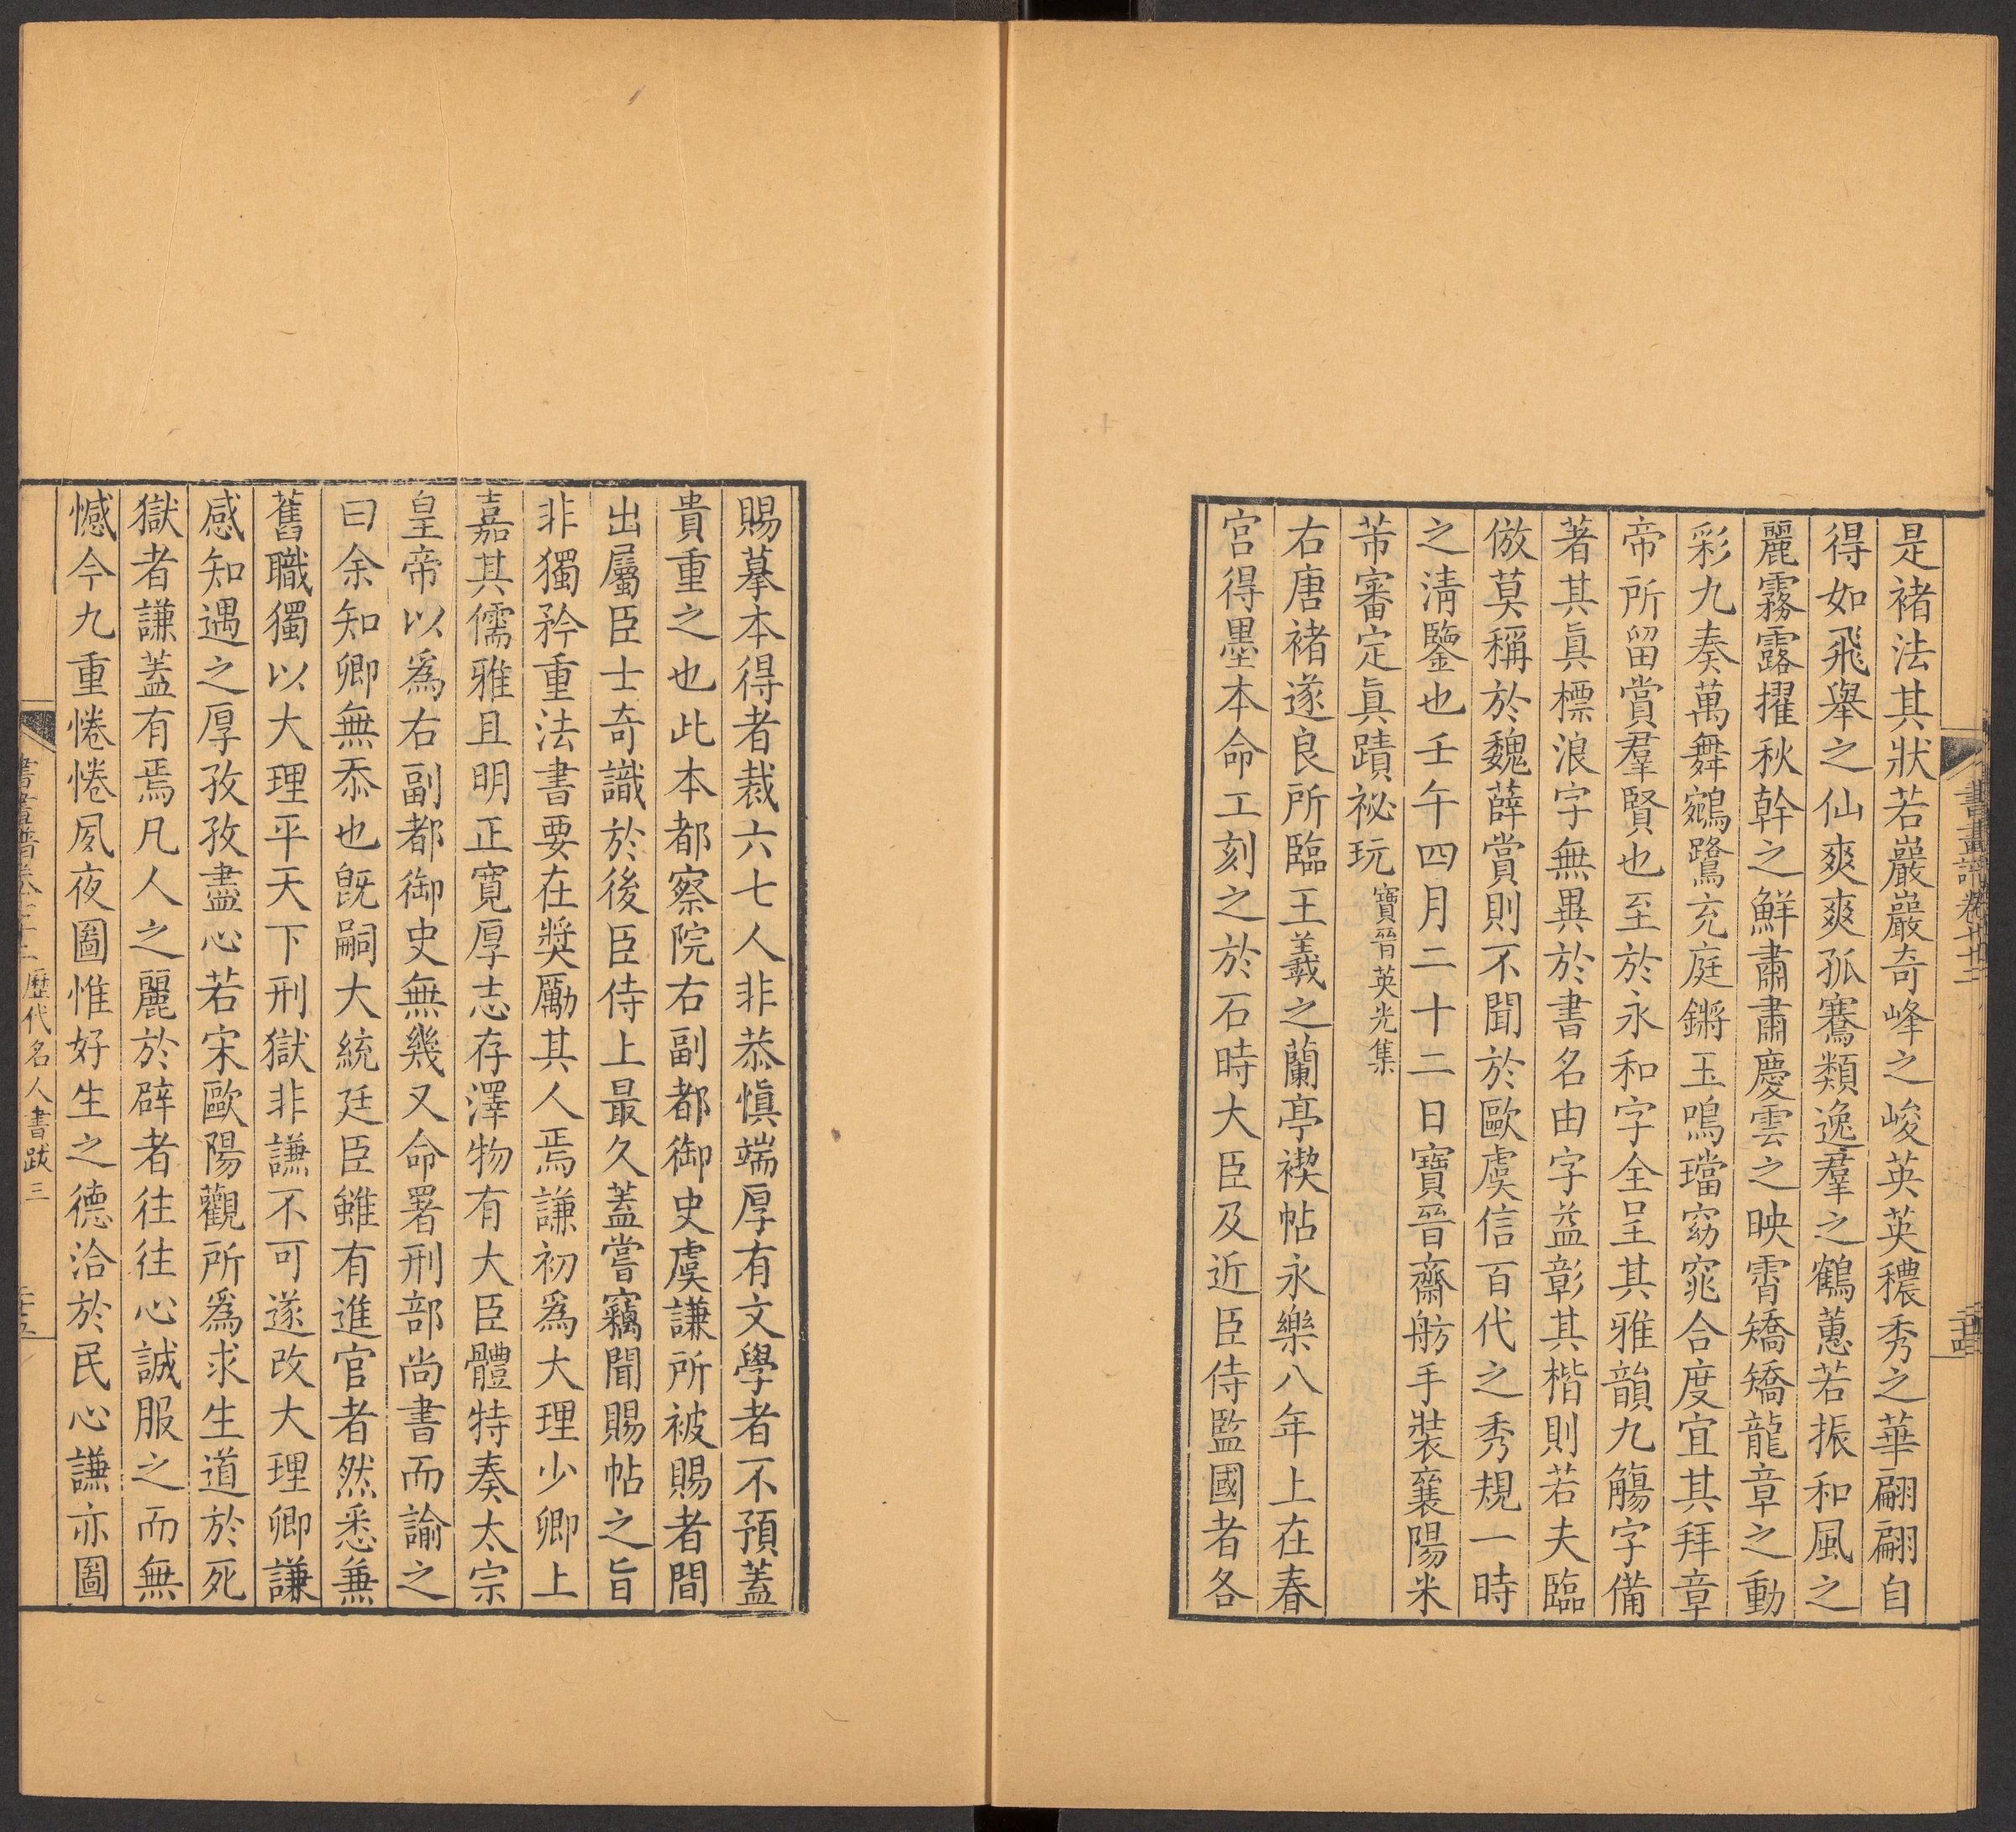 是褚法其狀若巖巖奇峰之峻英英穠秀之華翩翩自
得如飛舉之仙爽爽孤騫類逸羣之鶴蕙若振和風之
麗霧露擢秋幹之鮮肅肅慶雲之映霄矯矯龍章之動
彩九奏萬舞鵷鷺充庭鏘玉鳴璫窈窕合度宜其拜章
帝所留賞羣賢也至於永和字全呈其雅韻九觴字備
著其眞標浪字無異於書名由字益彰其楷則若夫臨
倣莫稱於魏薛賞則不聞於歐虞信百代之秀規一時
之淸鑒也壬午四月二十二日寶晉齋舫手裝襄陽米
芾審定眞蹟祕玩寶晉英光集
右唐褚遂良所臨王羲之蘭亭禊帖永樂八年上在春
宮得墨本命工刻之於石時大臣及近臣侍監國者各
賜摹本得者裁六七人非恭愼端厚有文學者不預蓋
貴重之也此本都察院右副都御史虞謙所被賜者間
出屬臣士奇識於後臣侍上最久蓋嘗竊聞賜帖之旨
非獨矜重法書要在獎勵其人焉謙初爲大理少卿上
嘉其儒雅且明正寬厚志存澤物有大臣體特奏太宗
皇帝以爲右副都御史無幾又命署刑部尚書而諭之
曰余知卿無忝也旣嗣大統廷臣雖有進官者然悉兼
舊職獨以大理平天下刑獄非謙不可遂改大理卿謙
感知遇之厚孜孜盡心若宋歐陽觀所爲求生道於死
獄者謙蓋有焉凡人之麗於辟者往往心誠服之而無
憾今九重惓惓夙夜圖惟好生之德洽於民心謙亦圖
歷代名人書跋三